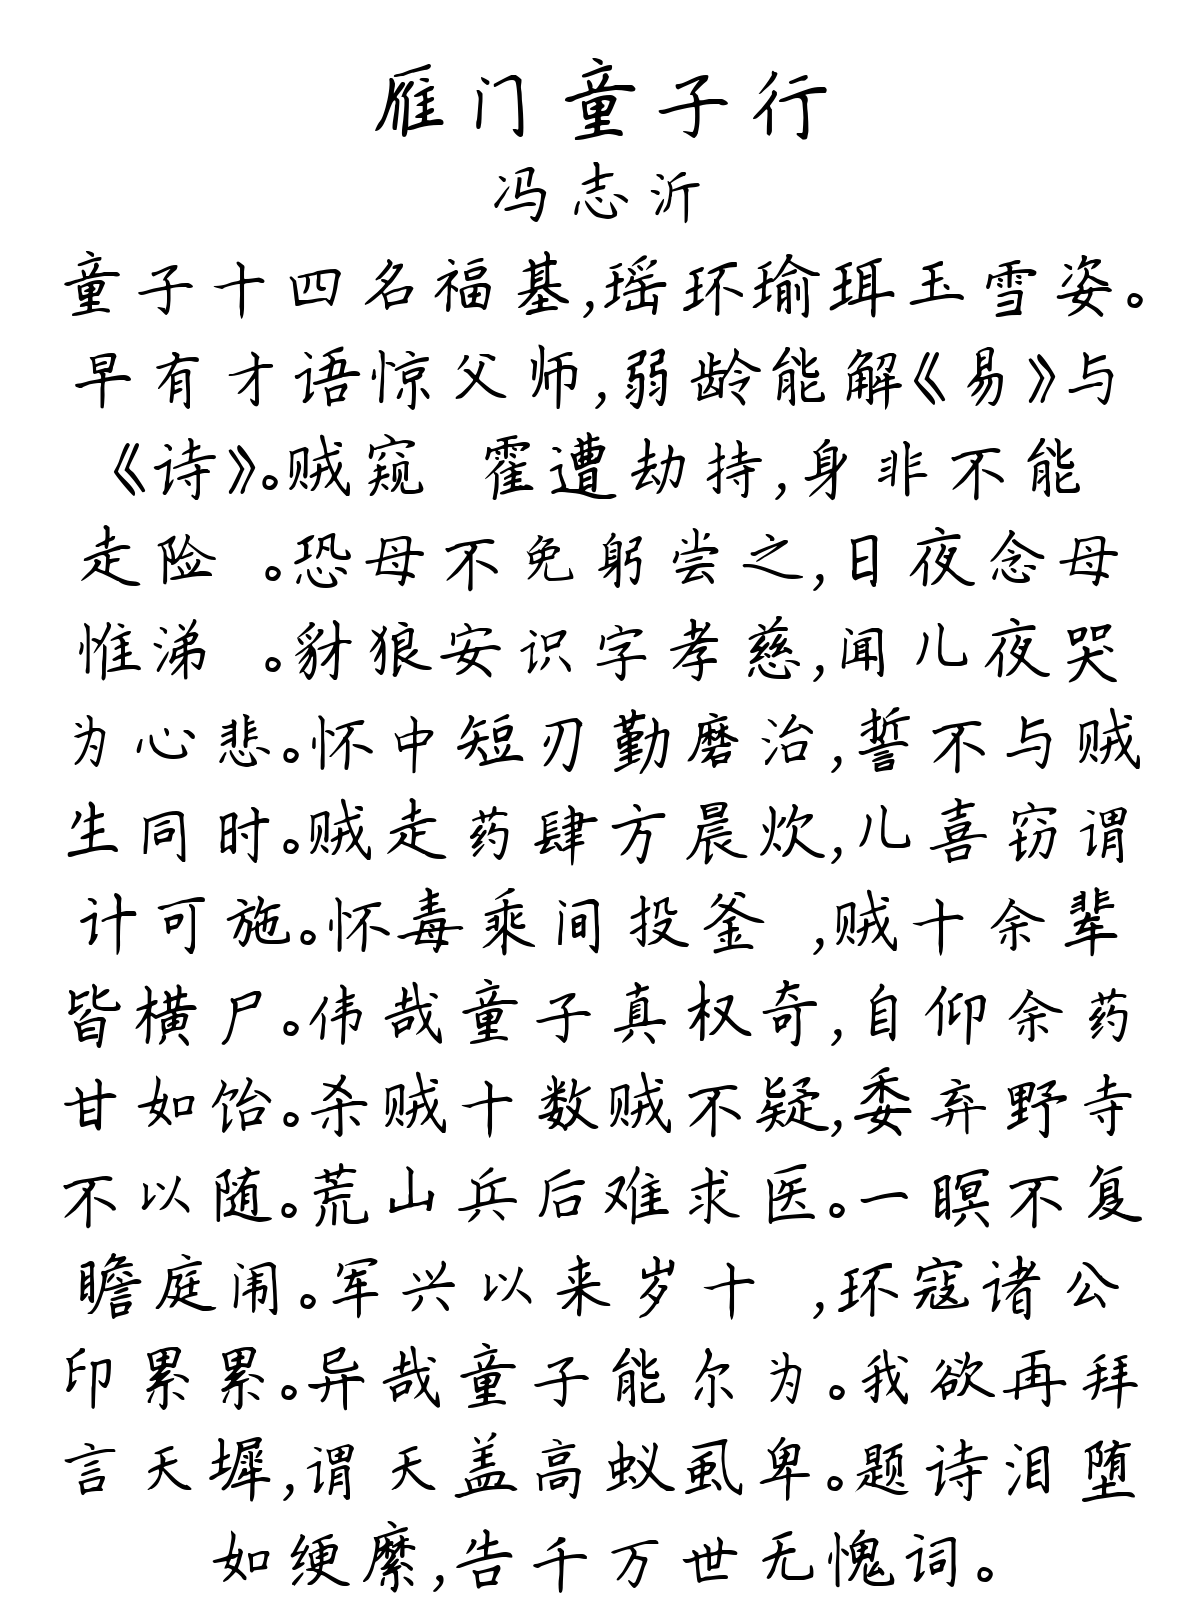 雁门童子行
冯志沂
童子十四名福基,瑶环瑜珥玉雪姿。
早有才语惊父师,弱龄能解《易》与
《诗》。贼窥 霍遭劫持,身非不能
走险 。恐母不免躬尝之,日夜念母
惟涕 。豺狼安识字孝慈,闻儿夜哭
为心悲。怀中短刃勤磨治,誓不与贼
生同时。贼走药肆方晨炊,儿喜窃谓
计可施。怀毒乘间投釜 ,贼十余辈
皆横尸。伟哉童子真权奇,自仰余药
甘如饴。杀贼十数贼不疑,委弃野寺
不以随。荒山兵后难求医。一瞑不复
瞻庭闱。军兴以来岁十 ,环寇诸公
印累累。异哉童子能尔为。我欲再拜
言天墀,谓天盖高蚁虱卑。题诗泪堕
如绠縻,告千万世无愧词。